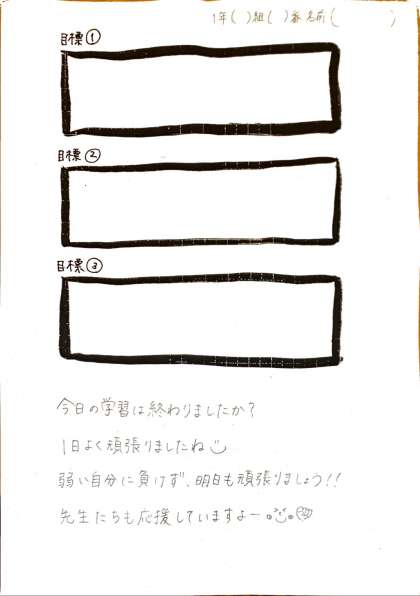 1年( )組( )番名前( )
目標①
目標②
目標③
今日の学習は終わりましたか?
1日よく頑張りましたね
弱い自分に負けず、明日も頑張りましょう!!
先生たちも応援していますよー